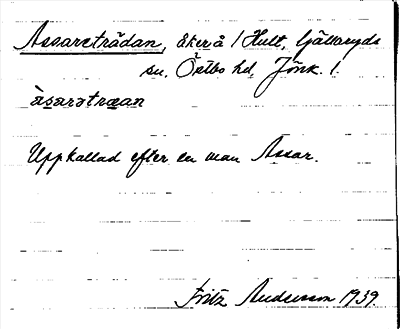 Assarsträdan, åker å / Hult, Gällaryds
sn, Östbo hd, Jönk. l.
àsarstræan
Uppkallad efter en man Assar.
Fritz Andersson 1939.